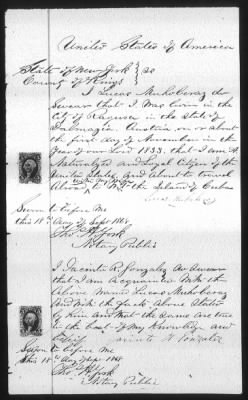 United States of America
State of New York } ss
County of Kings
I Lucas Muhoberac do
Swear that I was born in the
City of Ragusa in the State of
Dalmazia Austria on or about
the first day of November in the
Year of our Lord 1833. that I am a
Naturalized and Legal Citizen of the
United States, and about to travel
Abroad to the Island of Cuba
Sworn to before me
this 18th day of Sept 1868
Notary Public
I Jacinto R. Gonzalez do Swear
that I am Acquainted with the
above named Lucas Muhoberac
and with the facts above stated
by him and that the same are true
to the best of my Knowledge and
belief
Jacinto R. Gonzalez
Sworn to before me
this 18th day of Sept 1868
Notary Public